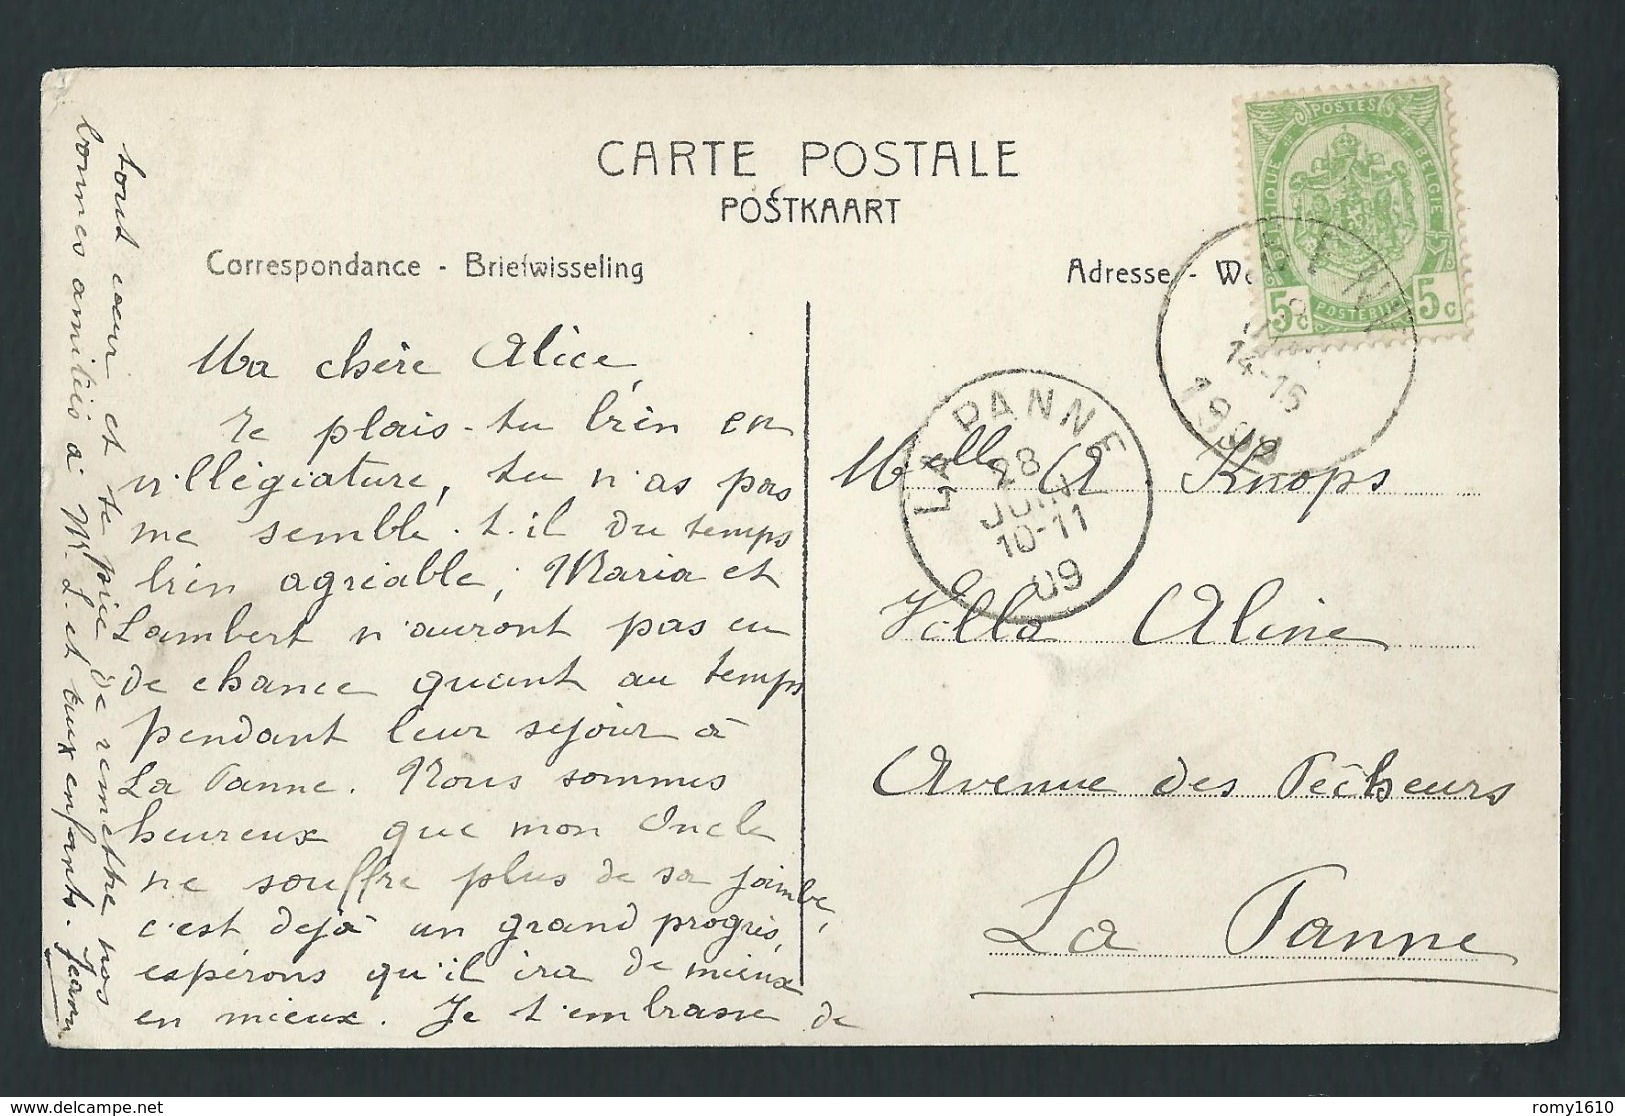 CARTE POSTALE
POSTKAART
Correspondance - Briefwisseling
Adresse - 
POSTES
BELGIQUE
BELGIE
POSTERIJEN
5c
5c
14-15
LA PANNE
28
JUIN
10-11
09
Ma chère Alice,
Te plais-tu bien en
villégiature, tu n'as pas
me semble-t-il du temps
bien agréable; Maria et
Lambert n'auront pas eu
de chance quant au temps
pendant leur séjour à
La Panne. Nous sommes
heureux que mon Oncle
ne souffre plus de sa jambe,
c'est déjà un grand progrès,
espérons qu'il ira de mieux
en mieux. Je t'embrasse de
tout cœur et te prie de remettre nos
bonnes amitiés à Mr L. et aux enfants. Jeanne
Melle A Knops
Villa Aline
Avenue des Pêcheurs
La Panne
romy1610